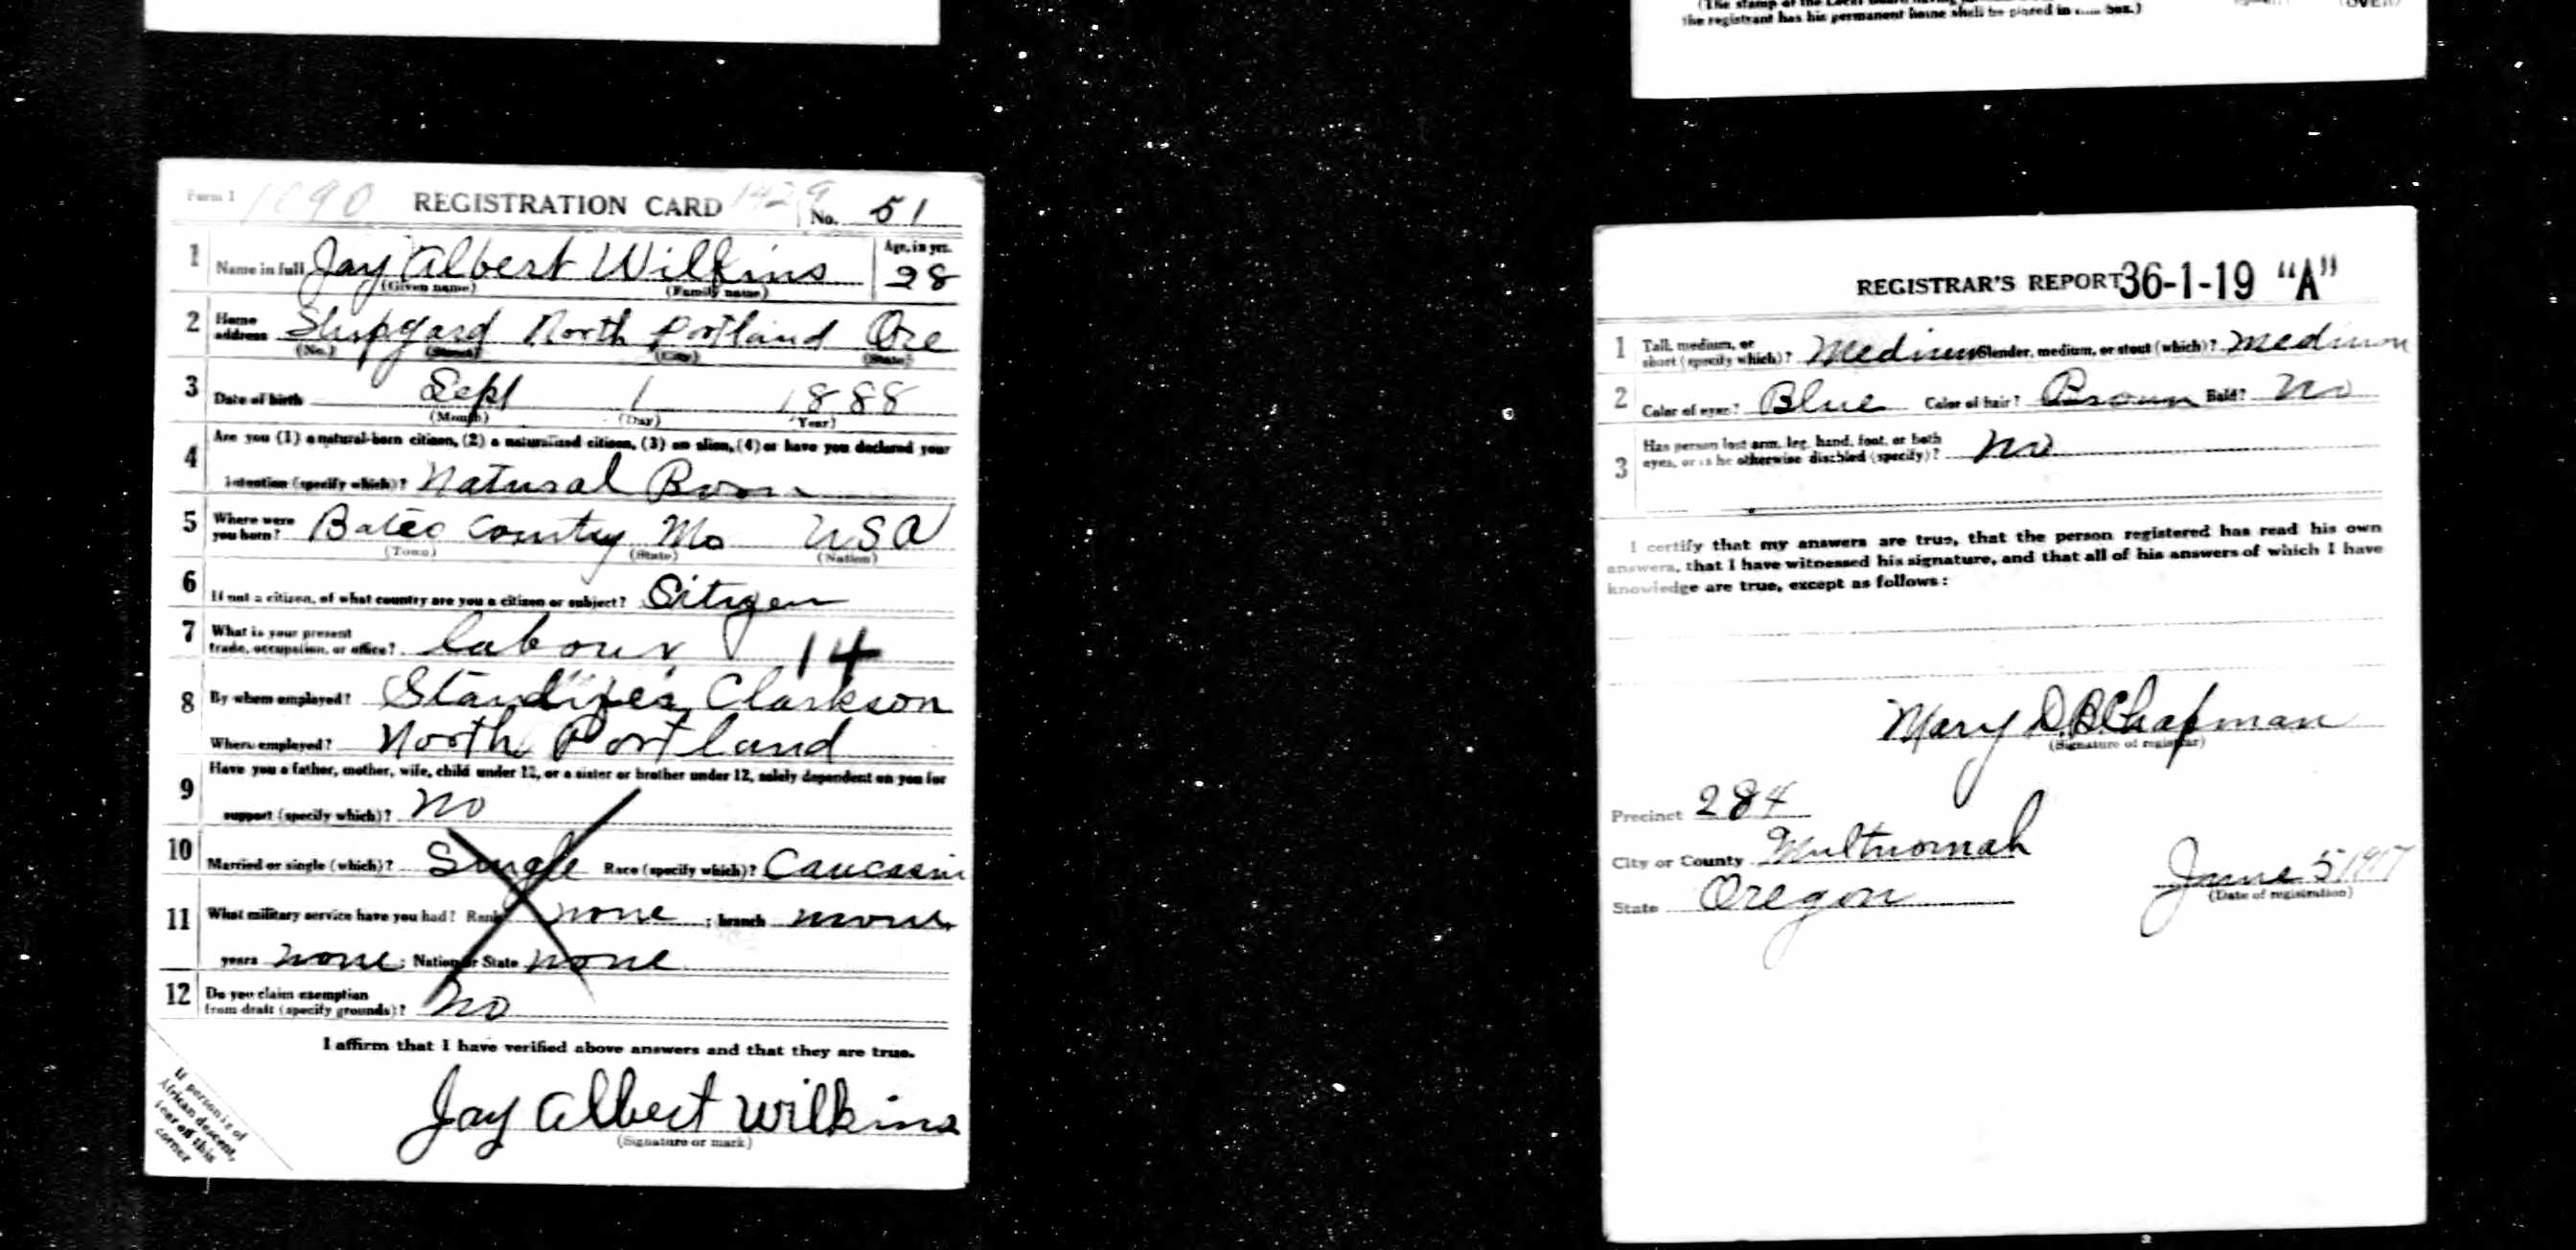 (The stamp of the Local Board having
the registrant has his permanent home shall be placed in this box.)
(OVER)
Form 1 1090 REGISTRATION CARD 1429 No. 51
1 Name in full Jay Albert Wilkins Age, in yrs. 28
(Given name) (Family name)
2 Home address Shipyard North Portland Ore
(No.) (Street) (City) (State)
3 Date of birth Sept 1 1888
(Month) (Day) (Year)
4 Are you (1) a natural-born citizen, (2) a naturalized citizen, (3) an alien, (4) or have you declared your
intention (specify which)? Natural Born
5 Where were you born? Bates County Mo USA
(Town) (State) (Nation)
6 If not a citizen, of what country are you a citizen or subject? Citizen
7 What is your present trade, occupation, or office? labour 14
8 By whom employed? Standifer Clarkson
Where employed? North Portland
9 Have you a father, mother, wife, child under 12, or a sister or brother under 12, solely dependent on you for
support (specify which)? No
10 Married or single (which)? Single Race (specify which)? Caucasin
11 What military service have you had? Rank none ; branch none
years none ; Nation or State none
12 Do you claim exemption from draft (specify grounds)? No
I affirm that I have verified above answers and that they are true.
Jay Albert Wilkins
(Signature or mark)
If person is of
African descent,
tear off this
corner
REGISTRAR'S REPORT 36-1-19 "A"
1 Tall, medium, or short (specify which)? Medium Slender, medium, or stout (which)? Medium
2 Color of eyes? Blue Color of hair? Brown Bald? No
3 Has person lost arm, leg, hand, foot, or both
eyes, or is he otherwise disabled (specify)? No
I certify that my answers are true, that the person registered has read his own
answers, that I have witnessed his signature, and that all of his answers of which I have
knowledge are true, except as follows:
Mary D. B. Chapman
(Signature of registrar)
Precinct 284
City or County Multnomah
State Oregon
June 5 1917
(Date of registration)